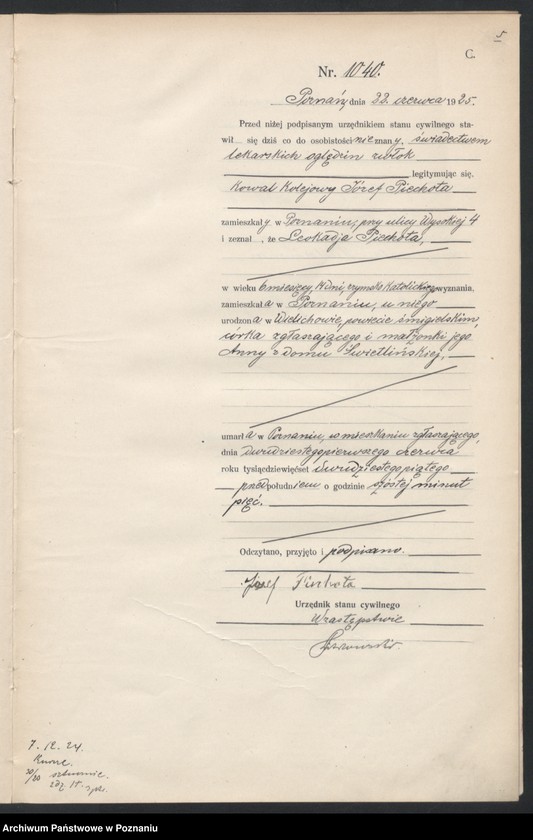 5
C.
Nr. 1040.
Poznań, dnia 22. czerwca 1925.
Przed niżej podpisanym urzędnikiem stanu cywilnego sta-
wił się dziś co do osobistości nieznany, świadectwem
lekarskich oględzin zwłok
legitymując się.
Kowal Kolejowy Józef Piechota
zamieszkały w Poznaniu, przy ulicy Wysokiej 4
i zeznał, że Leokadja Piechota,
w wieku 6 miesięcy, 14 dni, rzymsko katolickiego wyznania,
zamieszkała w Poznaniu, u niego
urodzona w Wielichowie, powiecie śmigielskim,
córka zgłaszającego i małżonki jego
Anny z domu Świetlińskiej,
umarła w Poznaniu, w mieszkaniu zgłaszającego,
dnia dwudziestego pierwszego czerwca
roku tysiącdziewięćset dwudziestego piątego
przedpołudniem o godzinie szóstej minut
pięć.
Odczytano, przyjęto i podpisano.
Józef Piechota
Urzędnik stanu cywilnego
W zastępstwie
7. 12. 24.
Archiwum Państwowe w Poznaniu